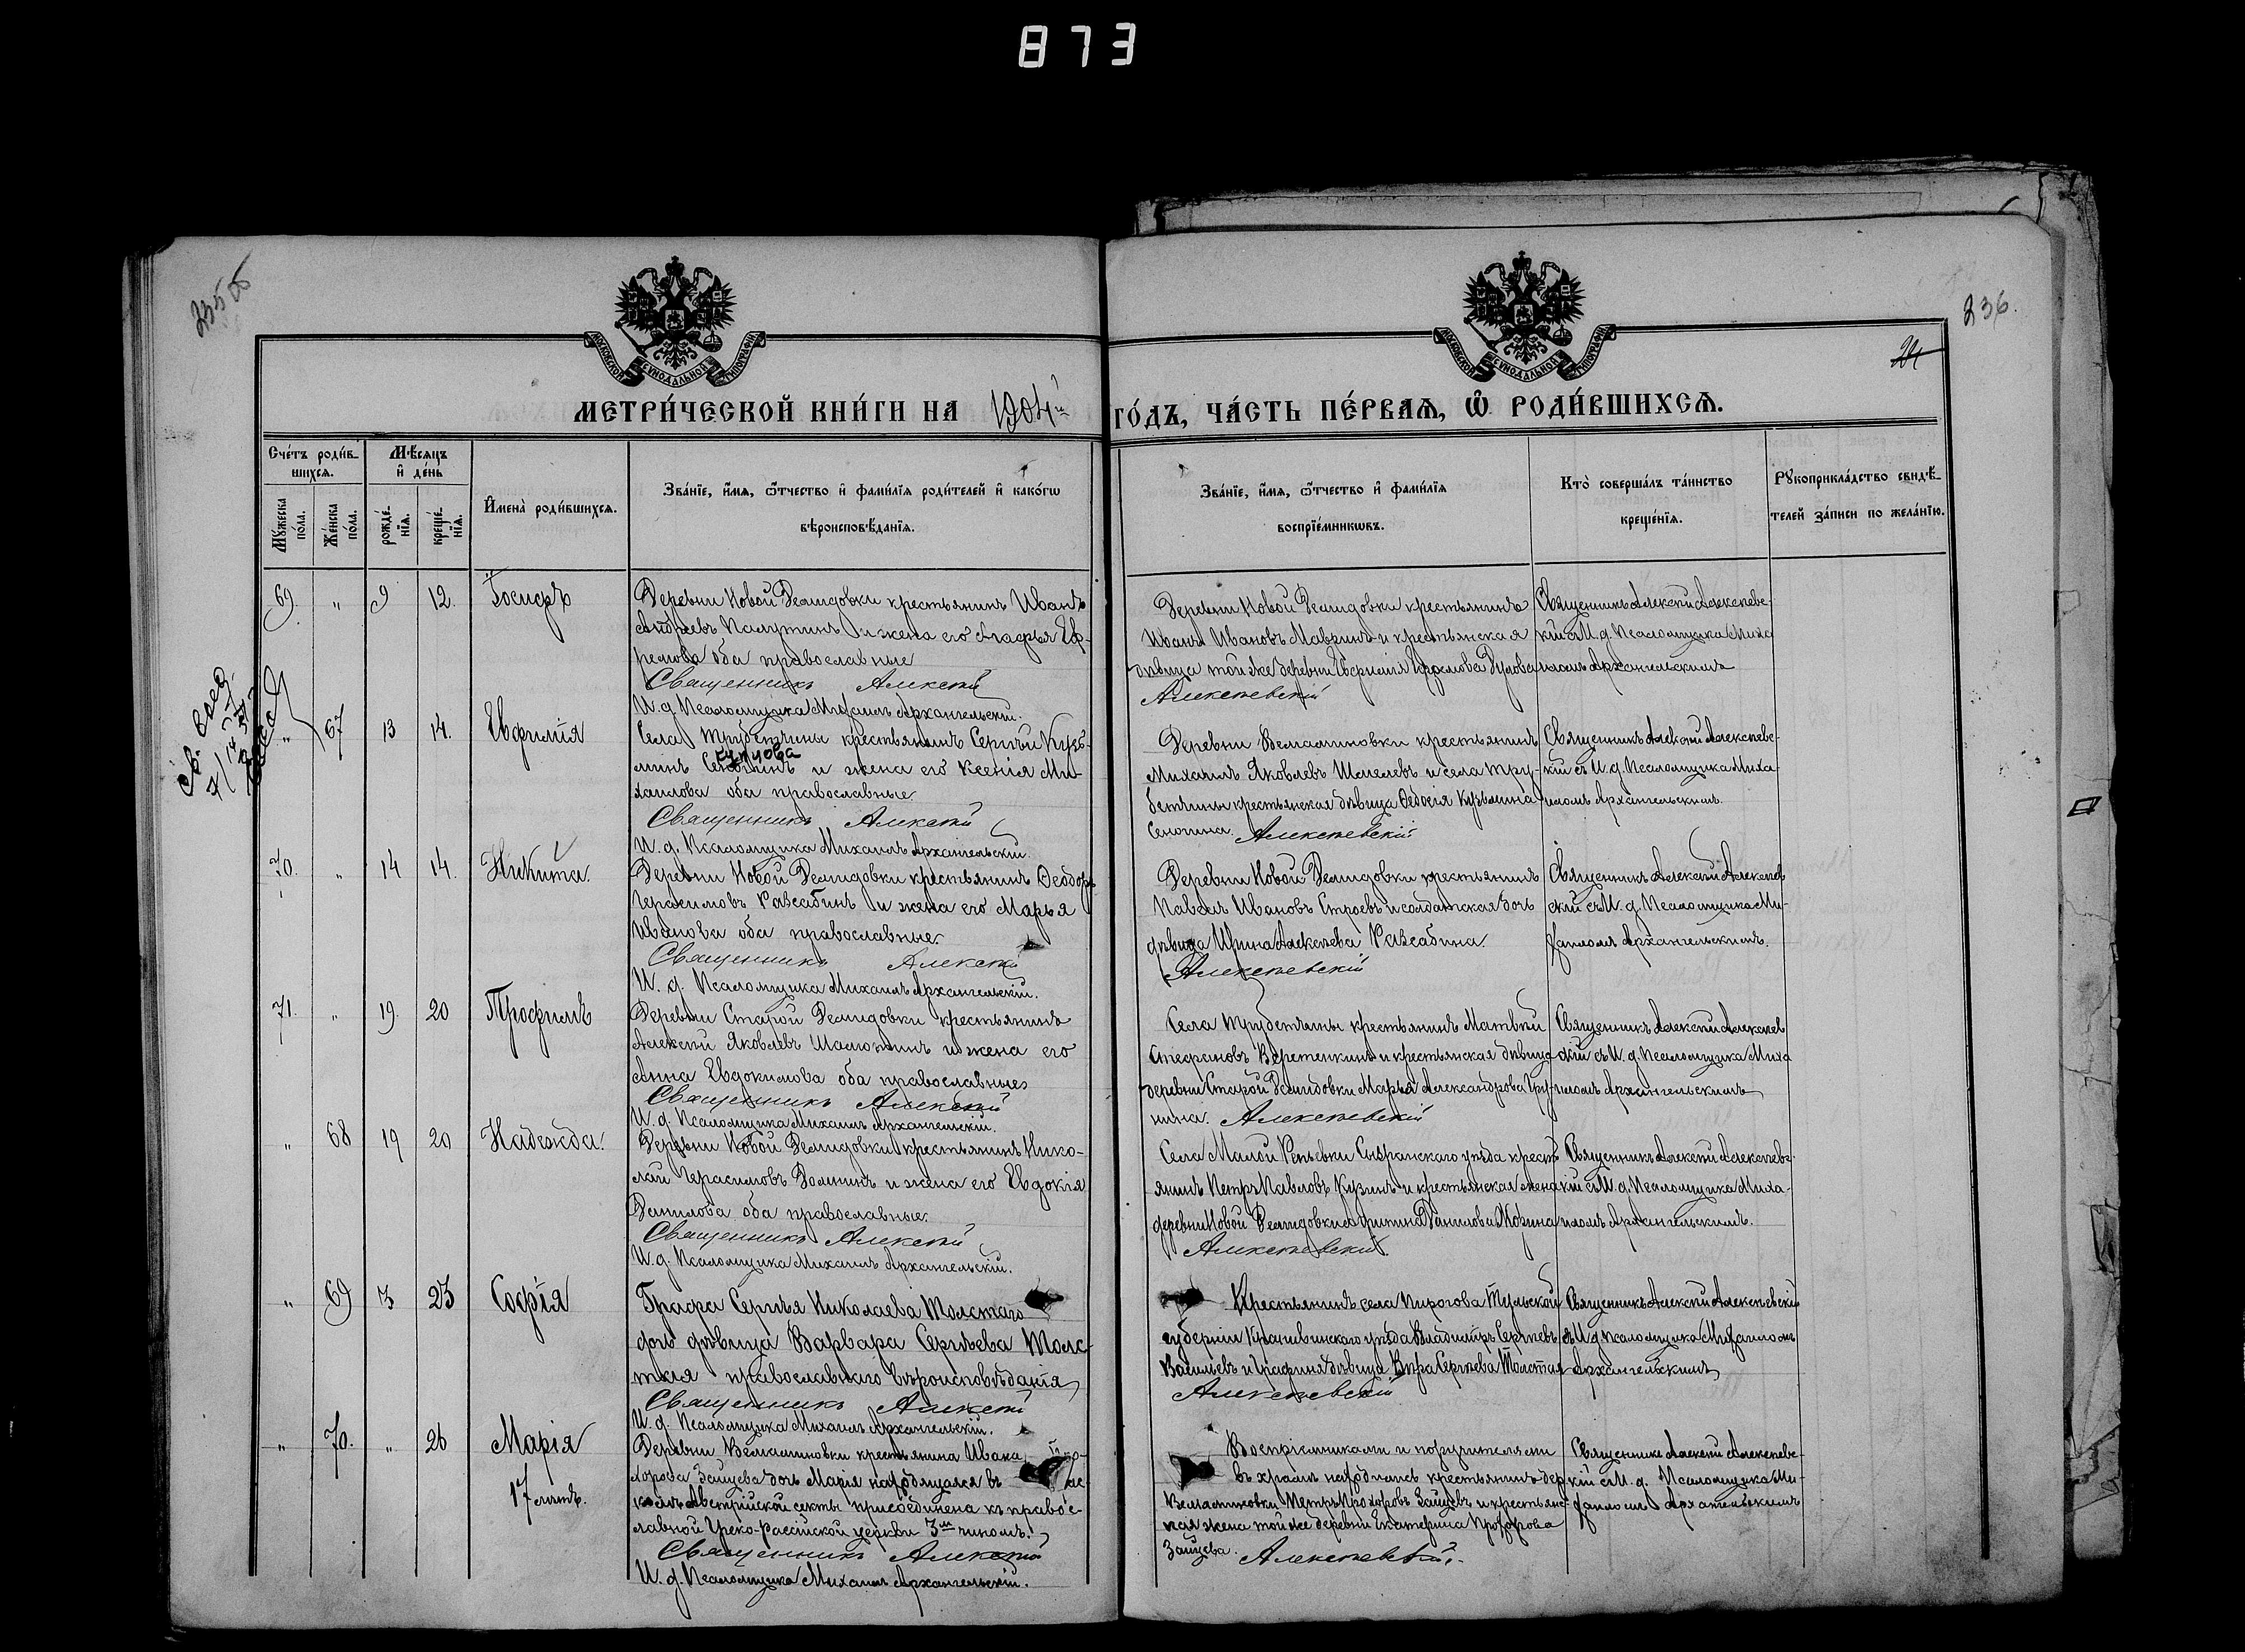 873
235 об
236.
24
МОСКОВСКОЙ СѴНОДАЛЬНОЙ ТИПОГРАФІИ
МОСКОВСКОЙ СѴНОДАЛЬНОЙ ТИПОГРАФІИ
МЕТРИ́ЧЕСКОЙ КНИ́ГИ НА 1904й ГО́ДЪ, ЧА́СТЬ ПЕ́РВАѦ, Ѡ҆ РОДИ́ВШИХСѦ.
Сче́тъ роди́в-
шихсѧ.
Мꙋ́жеска по́ла.
Же́нска по́ла.
Мѣ́сѧцъ и҆ де́нь
рожде́-
нїѧ.
креще́-
нїѧ.
И҆мена̀ роди́вшихсѧ.
Зва́нїе, и҆́мѧ, ѻ҆́тчество и҆ фами́лїѧ роди́телей и҆ како́гѡ
вѣроисповѣ́данїѧ.
Зва́нїе, и҆́мѧ, ѻ҆́тчество и҆ фами́лїѧ
воспрїе́мникѡвъ.
Кто̀ соверша́лъ та́инство
креще́нїѧ.
Рꙋкоприкла́дство свидѣ́-
телей за́писи по жела́нїю.
69. " 9 12. Іосифъ
Деревни Новой Демидовки крестьянинъ Иванъ
Андреевъ Калутинъ и жена его Агафья Еф-
ремова оба православные
Священникъ Алексѣй
И. д. Псаломщика Михаилъ Архангельскій.
Деревни Новой Демидовки крестьянинъ
Иванъ Ивановъ Мавринъ и крестьянская
дѣвица той же деревни Евфимія
Алексѣевскій
Священникъ Алексѣй Алексѣевс-
кій съ И. д. Псаломщика Миха
иломъ Архангельскимъ
" 67 13 14. Евфимія
Села Трубетчины крестьянинъ Сергѣй Кузь-
минъ Сенюшинъ и жена его Ксенія Ми-
хаилова оба православные.
Священникъ Алексѣй
И. д. Псаломщика Михаилъ Архангельскій.
Деревни Веньяминовки крестьянинъ
Михаилъ Яковлевъ Шмелевъ и села Тру-
бетчины крестьянская дѣвица Ѳедосія Кузьмина
Алексѣевскій
Священникъ Алексѣй Алексѣевс-
кій съ И. д. Псаломщика Миха-
иломъ Архангельскимъ.
70. " 14 14. Никита.
Деревни Новой Демидовки крестьянинъ Ѳеодоръ
Герасимовъ и жена его Марья
Иванова оба православные.
Священникъ Алексѣй
И. д. Псаломщика Михаилъ Архангельскій.
Деревни Новой Демидовки крестьянинъ
Павелъ Ивановъ Строевъ и солдатская дочь
дѣвица Ирина Алексѣева
Алексѣевскій
Священникъ Алексѣй Алексѣев
скій съ И. д. Псаломщика Ми-
хаиломъ Архангельскимъ.
71. " 19. 20 Трофимъ
Деревни Старой Демидовки крестьянинъ
Алексѣй Яковлевъ и жена его
Анна Евдокимова оба православные
Священникъ Алексѣй
И. д. Псаломщика Михаилъ Архангельскій.
Села Трубетчины крестьянинъ Матвѣй
Стефановъ Веретенкинъ и крестьянская дѣвица
деревни Старой Демидовки Марья Александрова Гру-
нина. Алексѣевскій
Священникъ Алексѣй Алексѣев
скій съ И. д. Псаломщика Миха
иломъ Архангельскимъ
" 68 19 20 Надежда.
Деревни Новой Демидовки крестьянинъ Нико-
лай Герасимовъ Доминъ и жена его Евдокія
Данилова оба православные.
Священникъ Алексѣй
И. д. Псаломщика Михаилъ Архангельскій.
Села Малой Репьевки Сызранскаго уѣзда кресть
янинъ Петръ Павловъ Кузинъ и крестьянская жена
деревни Новой Демидовки Данилова
Алексѣевскій.
Священникъ Алексѣй Алексѣевс-
кій съ И. д. Псаломщика Миха-
иломъ Архангельскимъ.
" 69 3 23 Софія
Графа Сергѣя Николаева Толстаго
дочь дѣвица Варвара Сергѣева Толс-
тая православнаго вѣроисповѣданія
Священникъ Алексѣй
И. д. Псаломщика Михаилъ Архангельскій.
Крестьянинъ села Пирогова Тульской
губерніи Крапивинскаго уѣзда Владиміръ Сергѣевъ
Васильевъ и Графиня дѣвица Вѣра Сергѣева Толстая
Алексѣевскій
Священникъ Алексѣй Алексѣевскій
съ И. д. псаломщика Михаиломъ
Архангельскимъ
" 70. " 26 Марія
17 лѣтъ.
Деревни Веньяминовки крестьянина Ивана Про-
хорова Зайцева дочь Марія находящаяся въ
Австрійской секты присоединена къ правос-
лавной Греко-россійской церкви 3м чиномъ.
Священникъ Алексѣй
И. д. Псаломщика Михаилъ Архангельскій.
Воспріемниками и поручителями
въ храмѣ находились крестьянинъ дер
Веньяминовки Петръ Прохоровъ Зайцевъ и крестьянс-
кая жена той же деревни Екатерина Прохорова
Зайцева. Алексѣевскій.
Священникъ Алексѣй Алексѣевс-
кій съ И. д. Псаломщика Ми-
хаиломъ Архангельскимъ